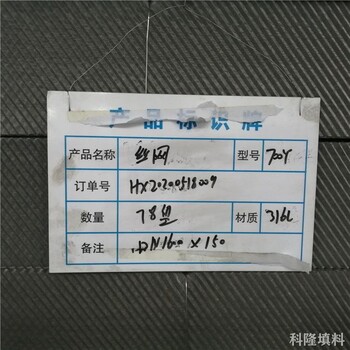 产品标识牌
产品名称 丝网 型号 700Y
订单号 HX20200518009
数量 78块 材质 316L
备注 DN1600×150
科隆填料